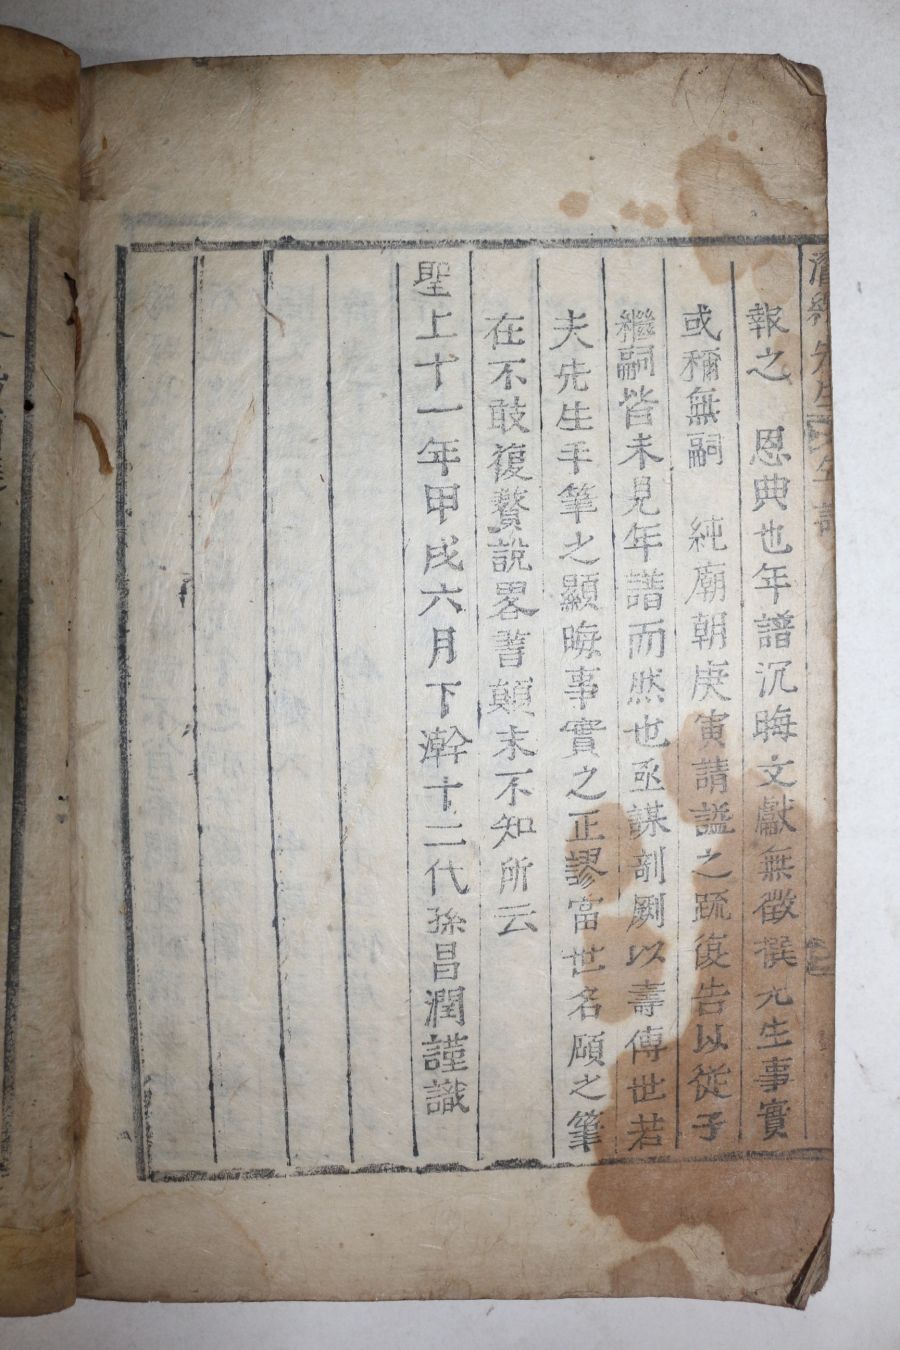 報之 恩典也年譜沉晦文獻無徵撰先生事實
或稱無嗣 純廟朝庚寅請謚之疏復告以從子
繼嗣皆未見年譜而然也亟謀剞劂以壽傳世若
夫先生手筆之顯晦事實之正謬當世名碩之筆
在不敢復贅說畧著顛末不知所云
聖上十一年甲戌六月下澣十二代孫昌潤謹識